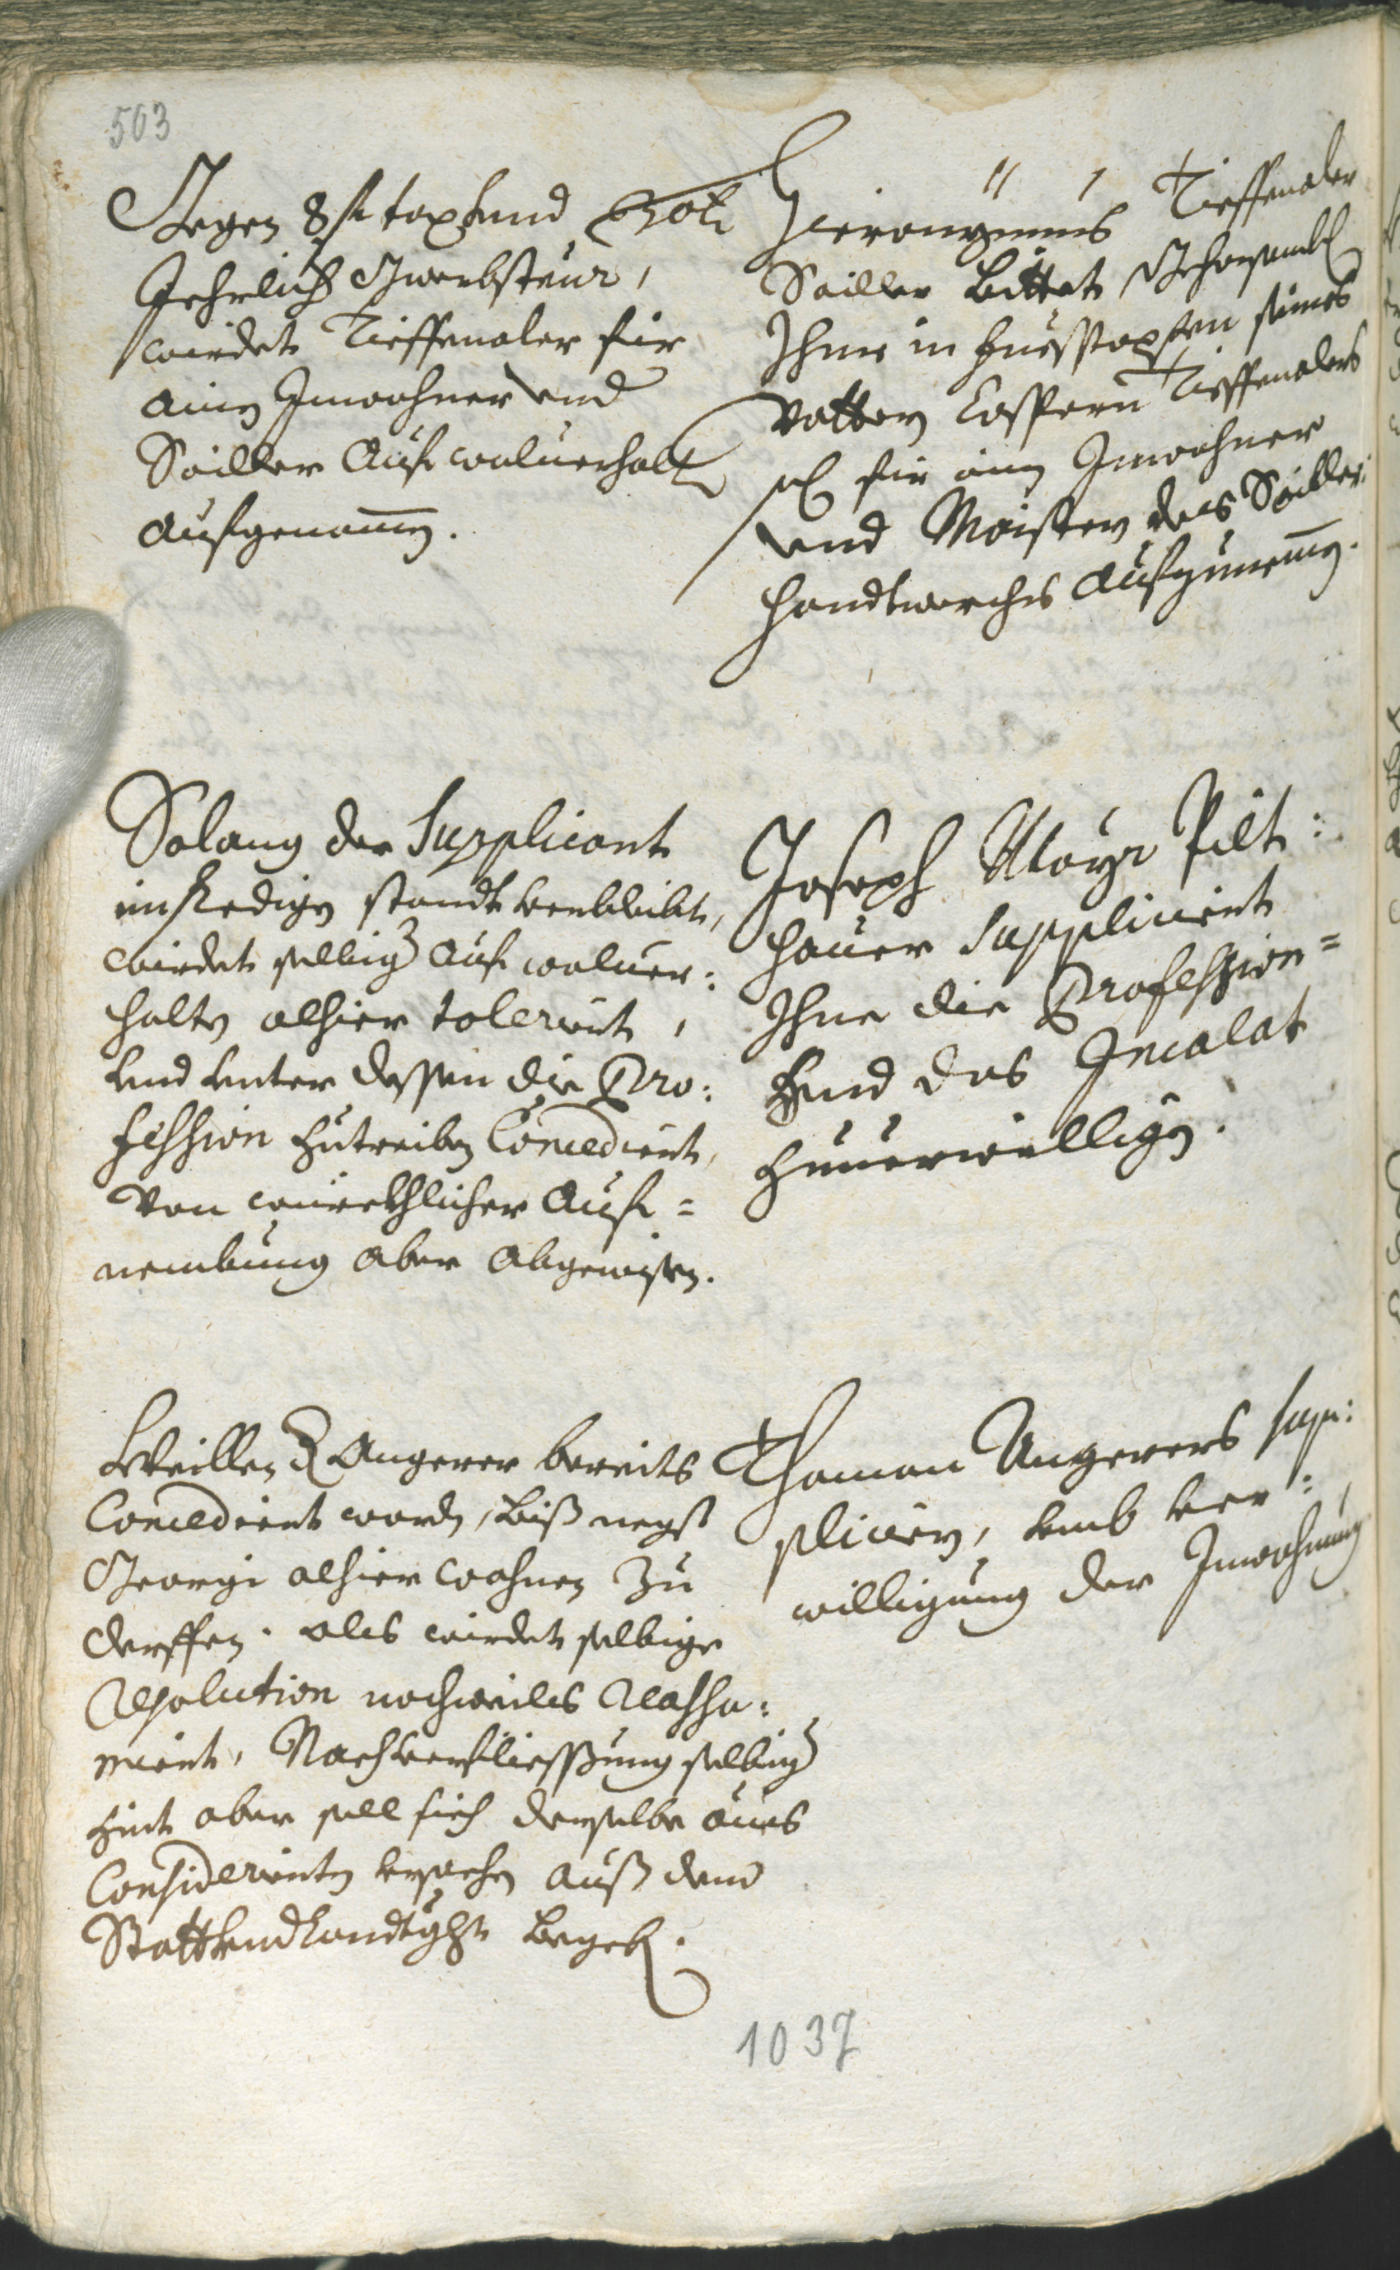 503
Gegen 8 fl tax und
Jehrlich Gwerbsteur,
wirdet Tieffenaler für
ainen Inwohner und
Sailler auf wolverhalten
aufgenomen.
Hieronymus Tieffenaler
Sailler bittet gehorsambl
Ihme in fuesstapfen seines
Vattern Casparn Tieffenalers
sel für ainen Inwohner
und Maister des Sailler
handtwerchs aufzunemen.
Solang der Supplicant
im Ledigen standt verbleibt,
wirdet selbiger auf wolver:
halten alhier tolerirt,
und unter dessen die Pro:
fession zutreiben Concedirt,
von würckhlicher auf=
nembung aber abgewisen.
Joseph Mayr Pilt:
hauer Supplicirt
Ihme die Profession=
und das Incolat
zuverwilligen.
Weillen der Angerer bereits
Concedirt worden, biß negst
Georgi alhier wohnen zu
derffen. als wirdet selbige
Resolution nochmals Reassu:
mirt, Nach verfliessung selbiger
Zeit aber soll sich derselbe aus
Considerirten ursachen auß dem
Statt und Landtght begeben.
Thoman Angerers sup:
plicirn, umb ver:
willigung der Inwohnung
1037